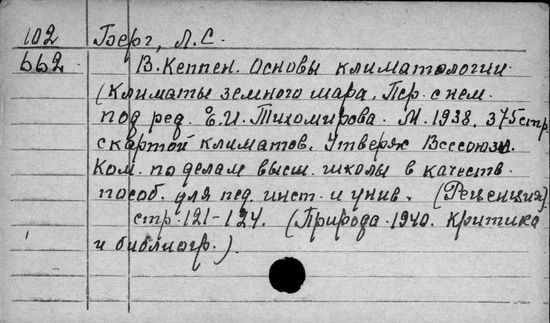 102 Берг, Л.С.
662. В. Кеппен. Основы климатологии.
(Климаты земного шара. Пер. с нем.
под ред. Е.И. Тихомирова. М. 1938. 375 стр
с картой климатов. Утвержд Всесоюзн.
Ком. по делам высш. школы в качеств.
пособ. для пед. инст. и унив. (Рецензия)
стр. 121-124. (Природа. 1940. Критика
и библиогр.).